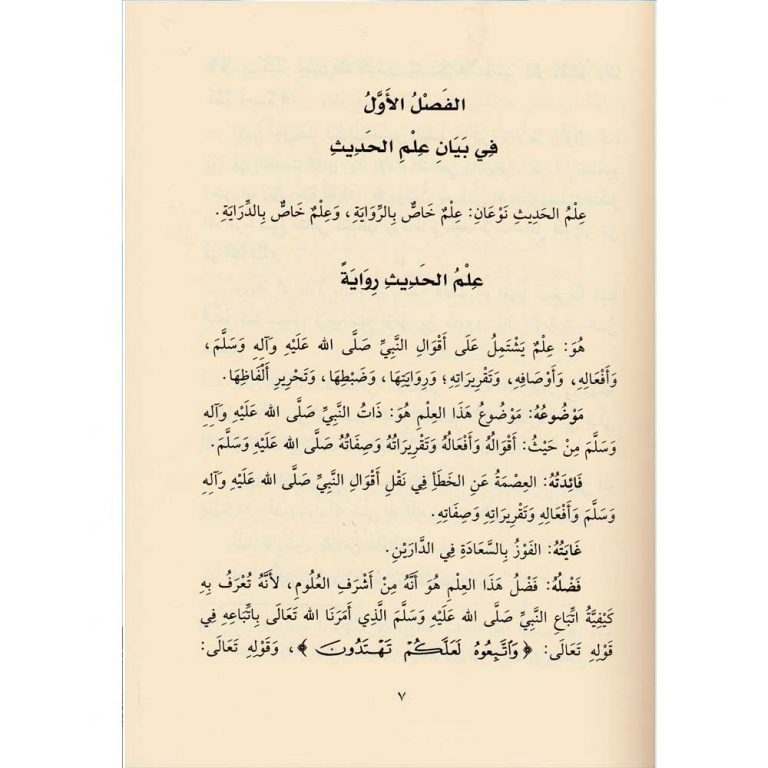 الفَصْلُ الأَوَّلُ
فِي بَيَانِ عِلْمِ الحَدِيثِ
عِلْمُ الحَدِيثِ نَوْعَانِ: عِلْمٌ خَاصٌّ بِالرِّوَايَةِ، وَعِلْمٌ خَاصٌّ بِالدِّرَايَةِ.
عِلْمُ الحَدِيثِ رِوَايَةً
هُوَ: عِلْمٌ يَشْتَمِلُ عَلَى أَقْوَالِ النَّبِيِّ صَلَّى الله عَلَيْهِ وَآلِهِ وَسَلَّمَ،
وَأَفْعَالِهِ، وَأَوْصَافِهِ، وَتَقْرِيرَاتِهِ؛ وَرِوَايَتِهَا، وَضَبْطِهَا، وَتَحْرِيرِ أَلْفَاظِهَا.
مَوْضُوعُهُ: مَوْضُوعُ هَذَا العِلْمِ هُوَ: ذَاتُ النَّبِيِّ صَلَّى الله عَلَيْهِ وَآلِهِ
وَسَلَّمَ مِنْ حَيْثُ: أَقْوَالُهُ وَأَفْعَالُهُ وَتَقْرِيرَاتُهُ وَصِفَاتُهُ صَلَّى الله عَلَيْهِ وَسَلَّمَ.
فَائِدَتُهُ: العِصْمَةُ عَنِ الخَطَأِ فِي نَقْلِ أَقْوَالِ النَّبِيِّ صَلَّى الله عَلَيْهِ وَآلِهِ
وَسَلَّمَ وَأَفْعَالِهِ وَتَقْرِيرَاتِهِ وَصِفَاتِهِ.
غَايَتُهُ: الفَوْزُ بِالسَّعَادَةِ فِي الدَّارَيْنِ.
فَضْلُهُ: فَضْلُ هَذَا العِلْمِ هُوَ أَنَّهُ مِنْ أَشْرَفِ العُلُومِ، لأَنَّهُ تُعْرَفُ بِهِ
كَيْفِيَّةُ اتِّبَاعِ النَّبِيِّ صَلَّى الله عَلَيْهِ وَسَلَّمَ الَّذِي أَمَرَنَا الله تَعَالَى بِاتِّبَاعِهِ فِي
قَوْلِهِ تَعَالَى: ﴿ وَٱتَّبِعُوهُ لَعَلَّكُمْ تَهْتَدُونَ ﴾، وَقَوْلِهِ تَعَالَى:
٧